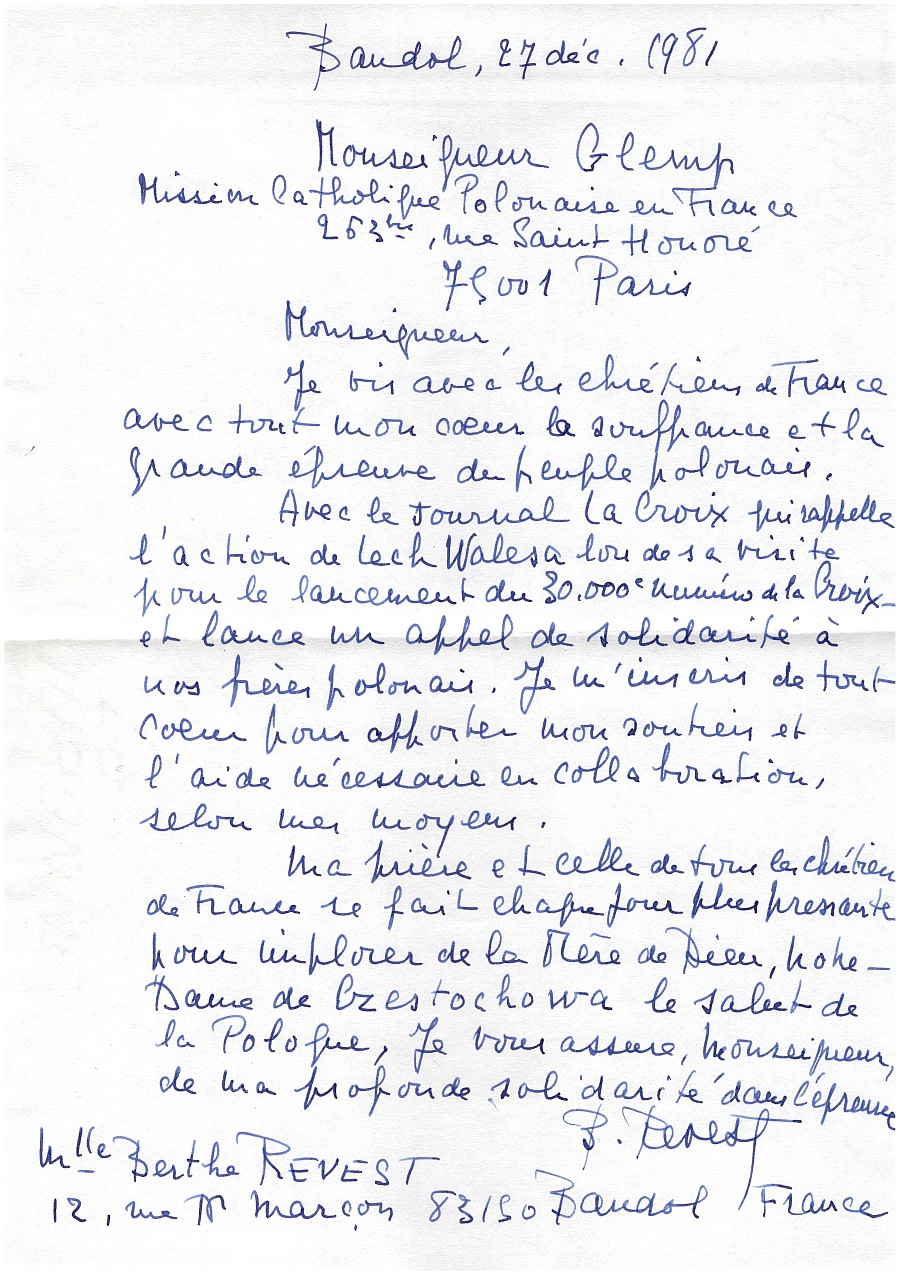 Bandol, 27 déc. 1981
Monseigneur Glemp
Mission Catholique Polonaise en France
263 bis, rue Saint Honoré
75001 Paris
Monseigneur,
Je vis avec les chrétiens de France
avec tout mon cœur la souffrance et la
grande épreuve du peuple polonais.
Avec le Journal La Croix qui rappelle
l'action de Lech Walesa lors de sa visite
pour le lancement du 30.000e numéro de la Croix -
et lance un appel de solidarité à
nos frères polonais. Je m'inscris de tout
cœur pour apporter mon soutien et
l'aide nécessaire en collaboration,
selon mes moyens.
Ma prière et celle de tous les chrétiens
de France se fait chaque jour plus pressante
pour implorer de la Mère de Dieu, Notre-
Dame de Czestochowa le salut de
la Pologne, Je vous assure, Monseigneur,
de ma profonde solidarité dans l'épreuve
B. Revest
Mlle Berthe REVEST
12, rue Dr Marçon 83150 Bandol France